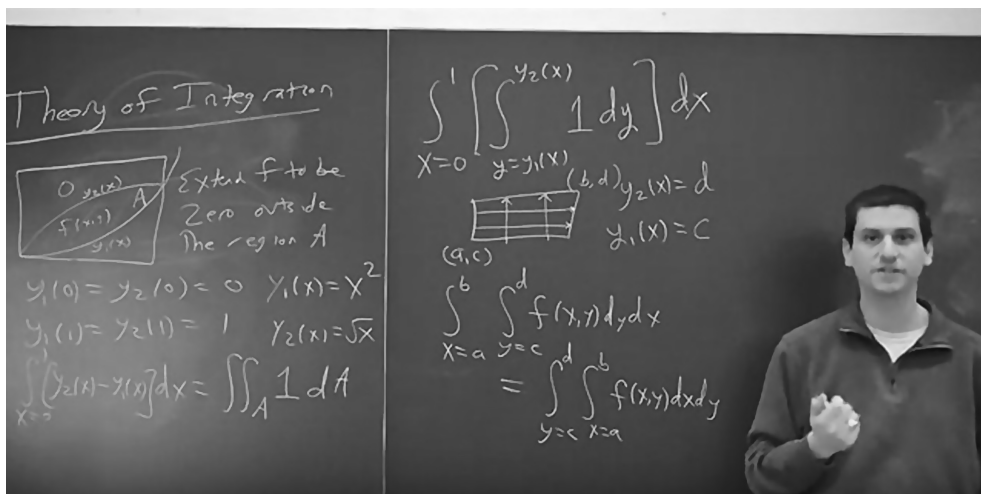 Theory of Integration
0 y₂(x)
A
f(x,y)
y₁(x)
Extend f to be
Zero outside
The region A
y₁(0) = y₂(0) = 0 y₁(x) = x²
y₁(1) = y₂(1) = 1 y₂(x) = √x
∫₍ₓ₌₀₎¹ [y₂(x) - y₁(x)] dx = ∬_A 1 dA
∫₍ₓ₌₀₎¹ [ ∫_{y=y₁(x)}^{y₂(x)} 1 dy ] dx
(b,d) y₂(x) = d
y₁(x) = c
(a,c)
∫_{x=a}^{b} ∫_{y=c}^{d} f(x,y) dy dx
= ∫_{y=c}^{d} ∫_{x=a}^{b} f(x,y) dx dy